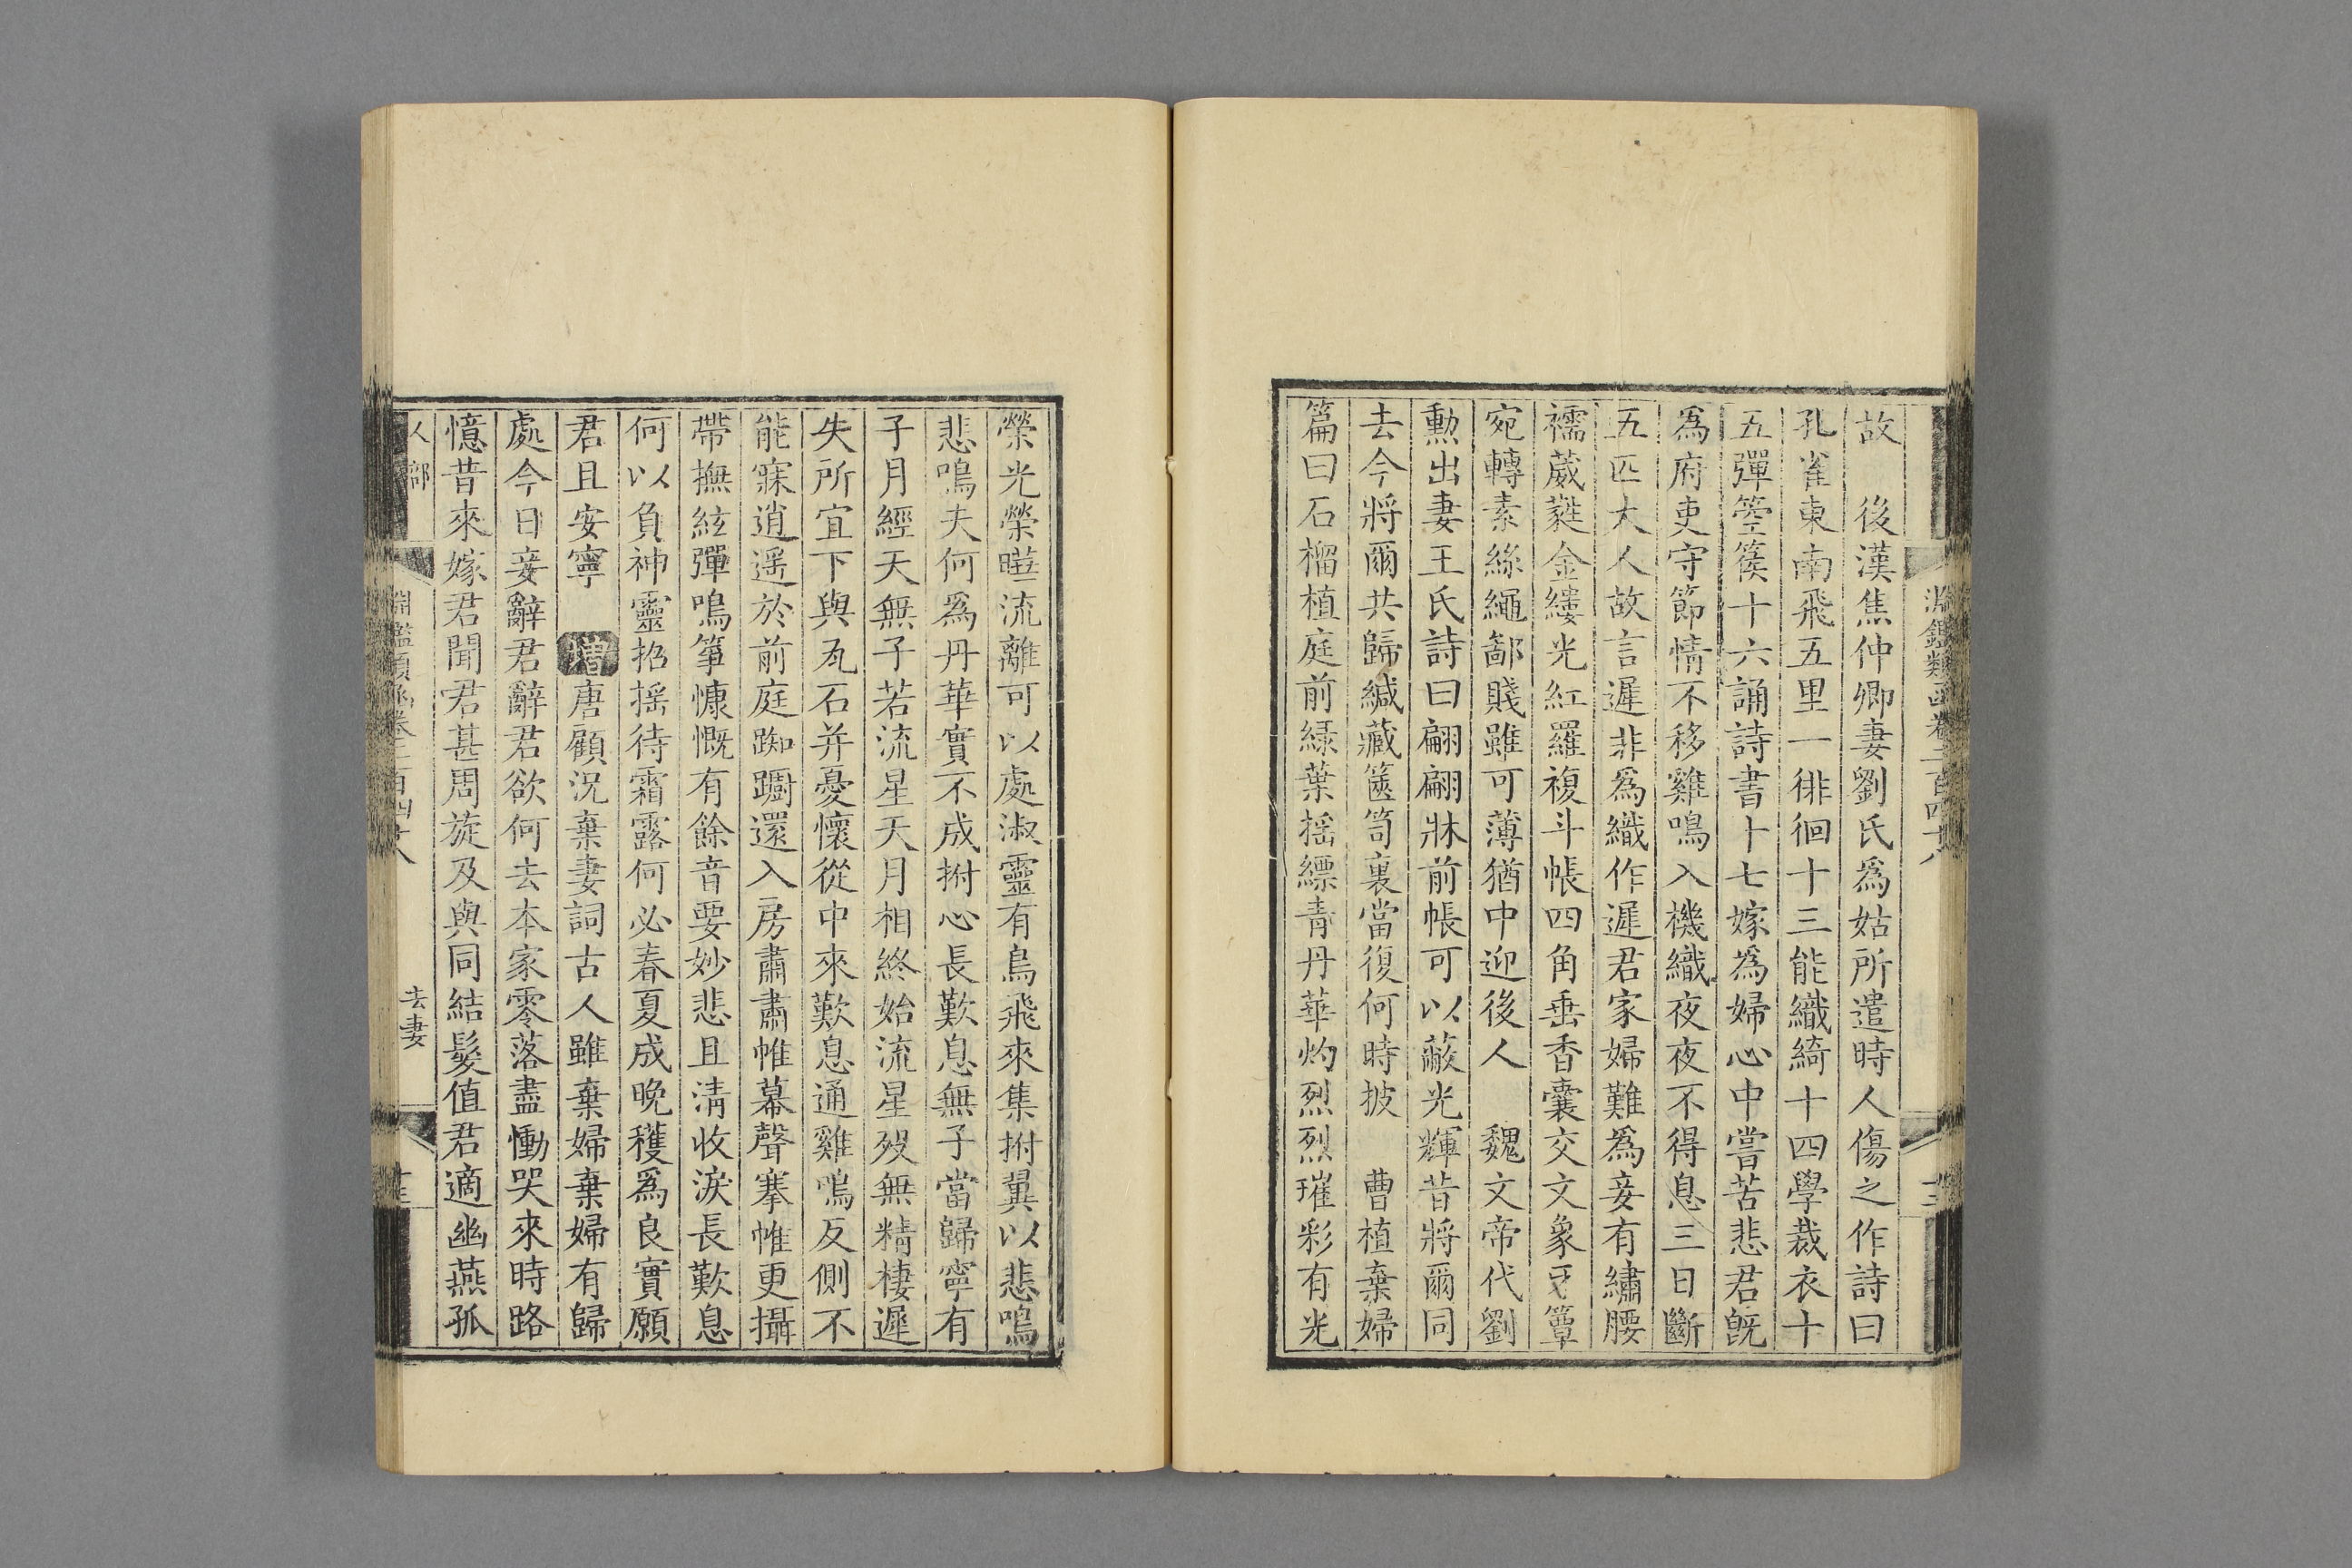 故　後漢焦仲卿妻劉氏爲姑所遣時人傷之作詩曰
孔雀東南飛五里一徘徊十三能織綺十四學裁衣十
五彈箜篌十六誦詩書十七嫁爲婦心中嘗苦悲君旣
爲府吏守節情不移雞鳴入機織夜夜不得息三日斷
五匹大人故言遲非爲織作遲君家婦難爲妾有繡腰
襦葳蕤金縷光紅羅複斗帳四角垂香囊交文象牙簟
宛轉素絲繩鄙賤雖可薄猶中迎後人　魏文帝代劉
勲出妻王氏詩曰翩翩牀前帳可以蔽光輝昔將爾同
去今將爾共歸緘藏篋笥裏當復何時披　曹植棄婦
篇曰石榴植庭前緑葉揺縹青丹華灼烈烈璀彩有光
榮光榮曄流離可以處淑靈有鳥飛來集拊翼以悲鳴
悲鳴夫何爲丹華實不成拊心長歎息無子當歸寧有
子月經天無子若流星天月相終始流星殁無精棲遲
失所宜下與瓦石并憂懷從中來歎息通雞鳴反側不
能寐逍遥於前庭踟躕還入房肅肅帷幕聲搴帷更攝
帶撫絃彈鳴箏慷慨有餘音要妙悲且淸收淚長歎息
何以負神靈招揺待霜露何必春夏成晩穫爲良實願
君且安寧　增唐顧況棄妻詞古人雖棄婦棄婦有歸
處今日妾辭君辭君欲何去本家零落盡慟哭來時路
憶昔未嫁君聞君甚周旋及與同結髮值君適幽燕孤
人部
淵鑑類函卷二百四十八
去妻